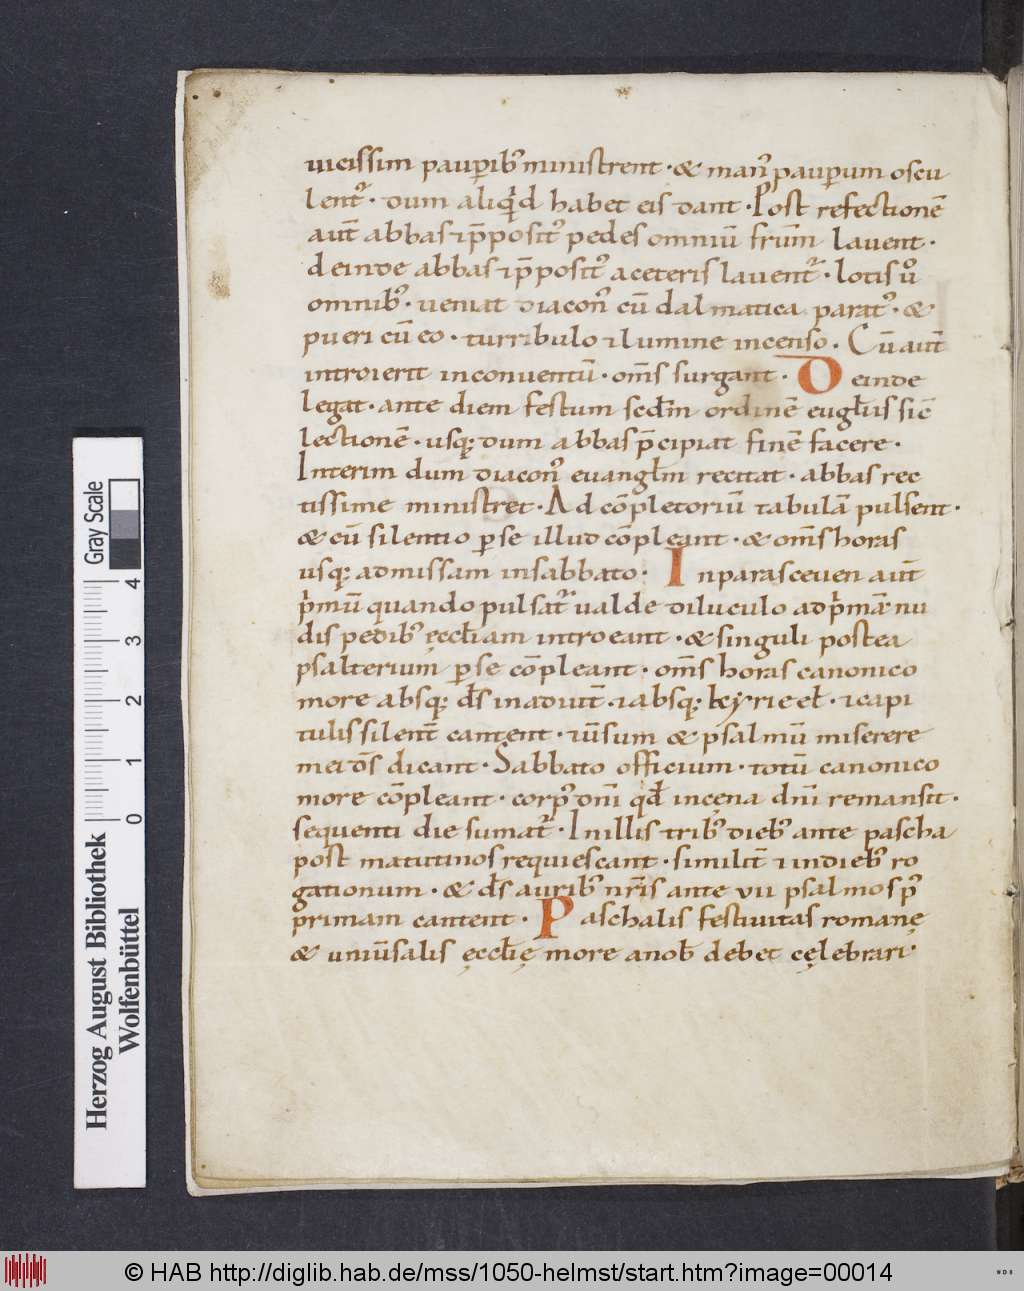 uicissim paup̱erib' ministrent · & man' paup̱erum oscu
lent' · dum aliq'd habet eis dant · Post refectionē
aut̄ abbas ⁊ p̄posit' pedes omniū fr̄m lauent ·
deinde abbas ⁊ p̄posit' a ceteris lauent' · lotis u°
omnib' · ueniat diacon' cū dalmatica parat' · &
pueri cū eo · turribulo ⁊ lumine incenso · Cū aut̄
introierit in conuentū · om̄s surgant · Deinde
legat · ante diem festum scd̄m ordinē eugl̄iis sic̄
lectionē · usq; dum abbas p̄cipiat finē facere ·
Interim dum diacon' euangl̄m recitat · abbas rec
tissime ministret · Ad cōpletoriū tabulā pulsent ·
& cū silentio ꝑ se illud cōpleant · & om̄s horas
usq; ad missam in sabbato · In parasceuen aut̄
p'mū quando pulsat' ualde diluculo ad p'mā nu
dis pedib' ęccl̄iam introeant · & singuli postea
psalterium ꝑ se cōpleant · om̄s horas canonico
more absq; d̄s in adiut̄ · ⁊ absq; kyrieel̄ · ⁊ capi
tulis silent̄ cantent · ⁊ ūsum & psalmū miserere
mei d̄s dicant · Sabbato officium · totū canonico
more cōpleant · corp' dn̄i qd̄ in cęna dn̄i remansit ·
sequenti die sumat' · In illis trib' dieb' ante pascha
post matutinos requiescant · similit̄ ⁊ in dieb' ro
gationum · & d̄s aurib' nr̄is ante vii psalmos p'
primam cantent · Paschalis festiuitas romanę
& uniūsalis ęccl̄ię more a nob̄ debet cęlebrari ·
Herzog August Bibliothek
Wolfenbüttel
0 1 2 3 4
Gray Scale
© HAB http://diglib.hab.de/mss/1050-helmst/start.htm?image=00014